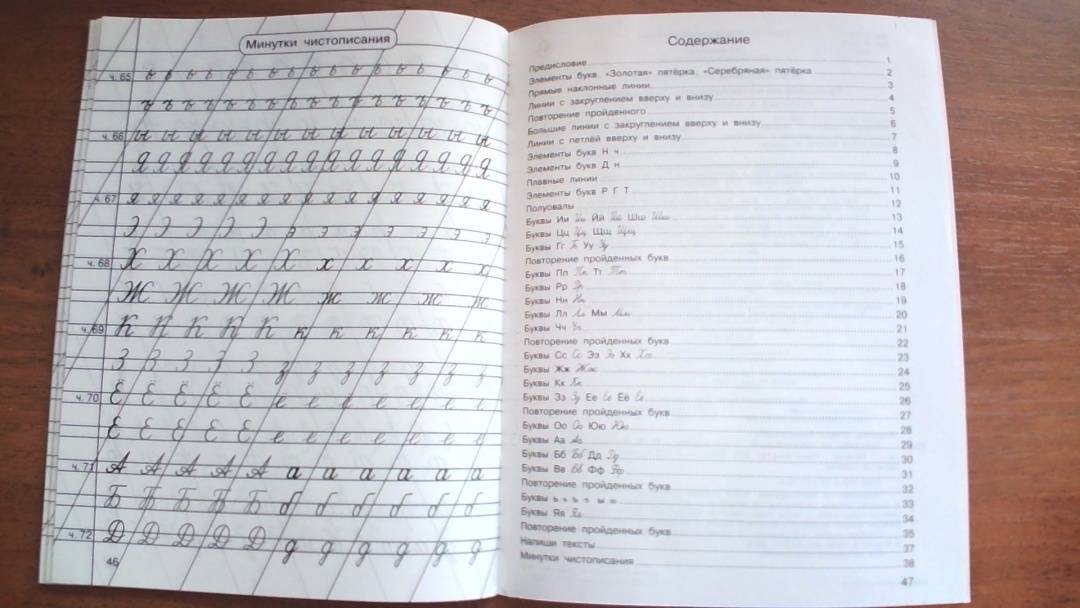 Минутки чистописания
ч. 65 ь ь ь ь ь ь ь ь ь ь ь ь ь ь ь ь ь ь
ъ ъ ъ ъ ъ ъ ъ ъ ъ ъ ъ ъ ъ ъ ъ ъ ъ ъ
ч. 66 ы ы ы ы ы ы ы ы ы ы ы ы ы
Я Я Я Я Я Я Я Я Я Я Я Я Я Я Я Я Я Я
ч. 67 я я я я я я я я я я я я я я я я я
Э Э Э Э Э э э э э э э э
ч. 68 Х Х Х Х Х х х х х х
Ж Ж Ж Ж ж ж ж ж
ч. 69 К К К К К к к к к к к
З З З З З з з з з з з з
ч. 70 Ё Ё Ё Ё Ё е е е е е е е
Ё Ё Ё Ё Ё е е е е е е е
ч. 71 А А А А А а а а а а а
Б Б Б Б Б б б б б б б
ч. 72 Д Д Д Д Д д д д д д д
46
Содержание
Предисловие 1
Элементы букв. «Золотая» пятёрка. «Серебряная» пятёрка 2
Прямые наклонные линии 3
Линии с закруглением вверху и внизу 4
Повторение пройденного 5
Большие линии с закруглением вверху и внизу 6
Линии с петлёй вверху и внизу 7
Элементы букв Н ч 8
Элементы букв Д н 9
Плавные линии 10
Элементы букв Р Г Т 11
Полуовалы 12
Буквы Ии Ии Йй Йй Шш Шш 13
Буквы Цц Цц Щщ Щщ 14
Буквы Гг Гг Уу Уу 15
Повторение пройденных букв 16
Буквы Пп Пп Тт Тт 17
Буквы Рр Рр 18
Буквы Нн Нн 19
Буквы Лл Лл Мм Мм 20
Буквы Чч Чч 21
Повторение пройденных букв 22
Буквы Сс Сс Ээ Ээ Хх Хх 23
Буквы Жж Жж 24
Буквы Кк Кк 25
Буквы Зз Зз Ее Ее Ёё Ёё 26
Повторение пройденных букв 27
Буквы Оо Оо Юю Юю 28
Буквы Аа Аа 29
Буквы Бб Бб Дд Дд 30
Буквы Вв Вв Фф Фф 31
Повторение пройденных букв 32
Буквы ь ь ъ ъ ы ы 33
Буквы Яя Яя 34
Повторение пройденных букв 35
Напиши тексты 37
Минутки чистописания 38
47